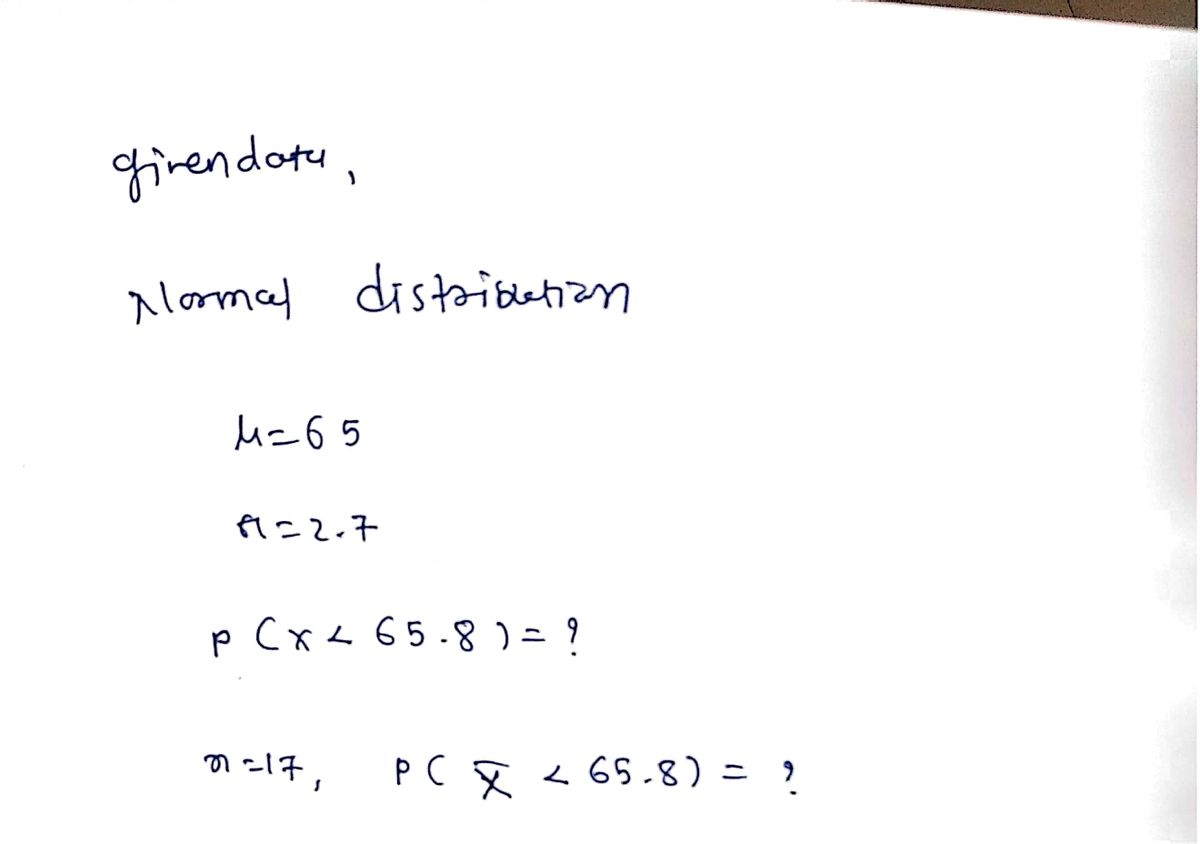 given data,
Normal distribution
μ=65
σ=2.7
P(x < 65.8) = ?
n=17, P(x̅ < 65.8) = ?